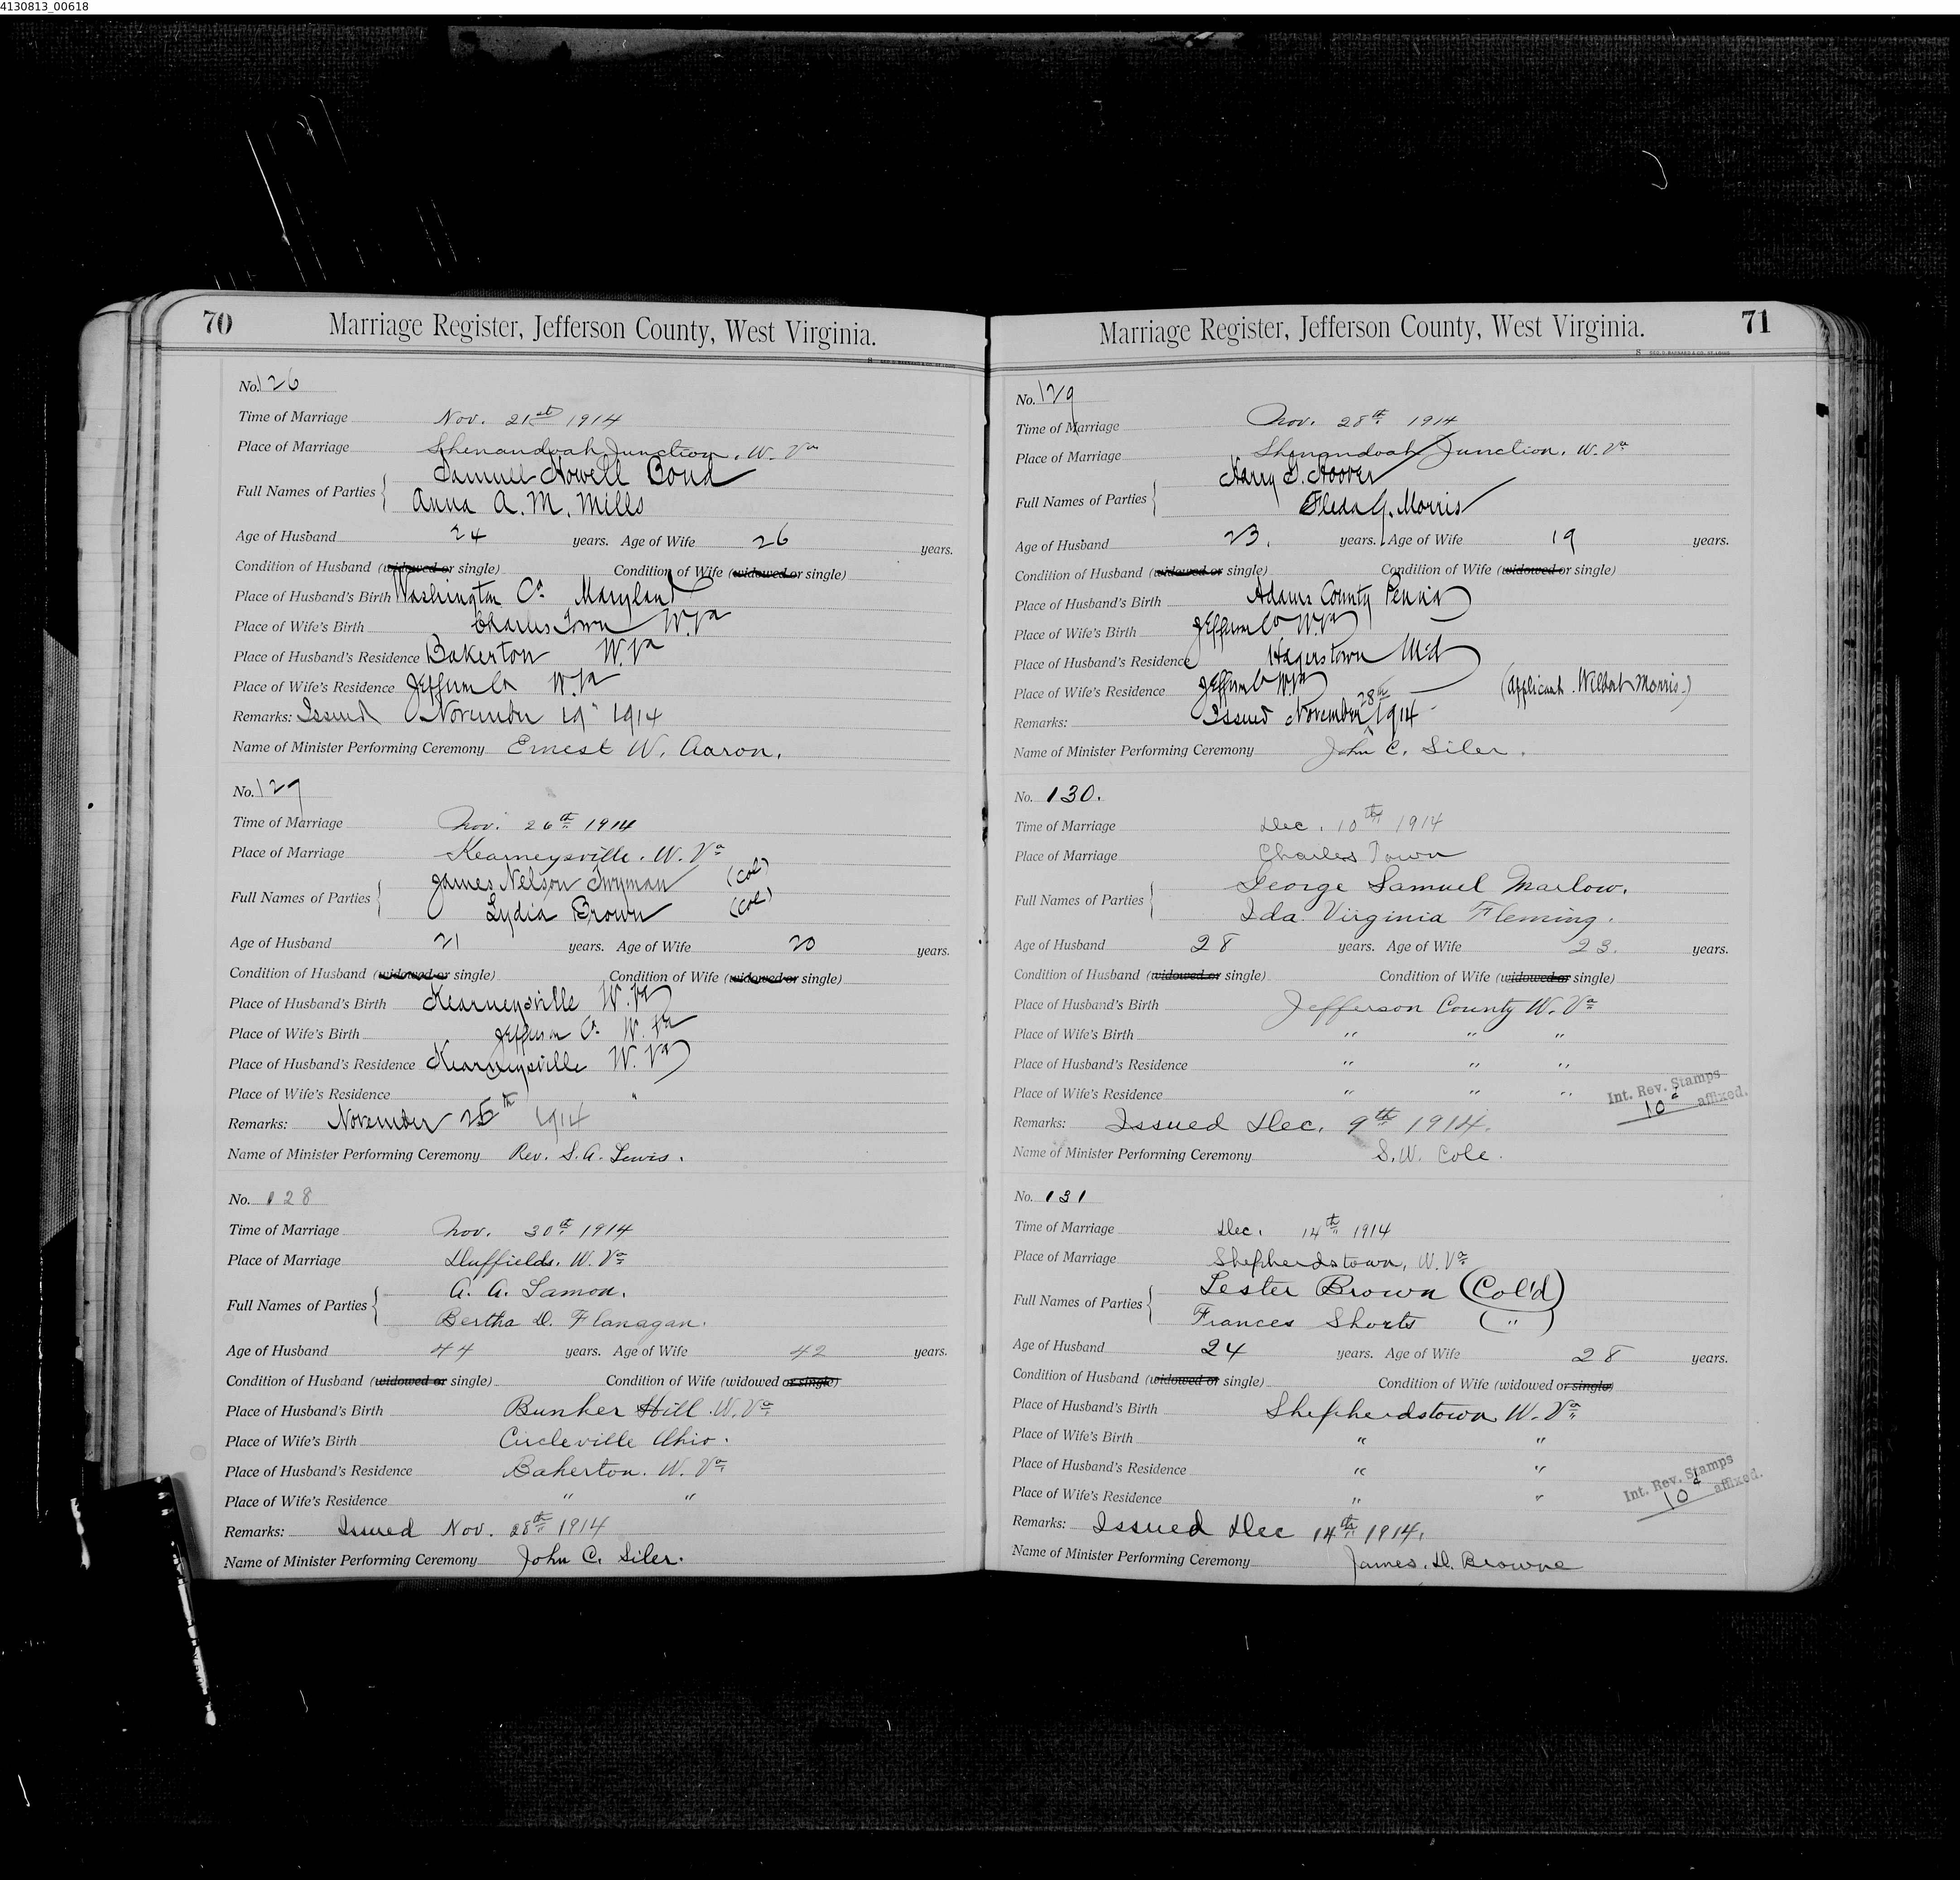 4130813_00618
70
Marriage Register, Jefferson County, West Virginia.
No. 126
Time of Marriage Nov. 21st 1914
Place of Marriage Shenandoah Junction, W. Va
Full Names of Parties Samuel Howell Bond
Anna A. M. Mills
Age of Husband 24 years. Age of Wife 26 years.
Condition of Husband (widowed or single) Condition of Wife (widowed or single)
Place of Husband's Birth Washington Co. Maryland
Place of Wife's Birth Charles Town W. Va
Place of Husband's Residence Bakerton W. Va
Place of Wife's Residence Jefferson Co W. Va
Remarks: Issued November 19" 1914
Name of Minister Performing Ceremony Ernest W. Aaron.
No. 127
Time of Marriage Nov. 26th 1914
Place of Marriage Kearneysville. W. Va
Full Names of Parties James Nelson Twyman (Col)
Lydia Brown (Col)
Age of Husband 21 years. Age of Wife 20 years.
Condition of Husband (widowed or single) Condition of Wife (widowed or single)
Place of Husband's Birth Kearneysville W. Va
Place of Wife's Birth Jefferson Co. W. Va
Place of Husband's Residence Kearneysville W. Va
Place of Wife's Residence "
Remarks: November 25th 1914
Name of Minister Performing Ceremony Rev. S. A. Lewis.
No. 128
Time of Marriage Nov. 30th 1914
Place of Marriage Duffields. W. Va
Full Names of Parties A. A. Lamon.
Bertha D. Flanagan.
Age of Husband 44 years. Age of Wife 42 years.
Condition of Husband (widowed or single) Condition of Wife (widowed or single)
Place of Husband's Birth Bunker Hill W. Va
Place of Wife's Birth Circleville Ohio.
Place of Husband's Residence Bakerton. W. Va
Place of Wife's Residence " "
Remarks: Issued Nov. 28th 1914
Name of Minister Performing Ceremony John C. Siler.
71
Marriage Register, Jefferson County, West Virginia.
No. 129
Time of Marriage Nov. 28th 1914
Place of Marriage Shenandoah Junction. W. Va
Full Names of Parties Harry G. Hoover
Fleda G. Morris
Age of Husband 23. years. Age of Wife 19 years.
Condition of Husband (widowed or single) Condition of Wife (widowed or single)
Place of Husband's Birth Adams County Penna
Place of Wife's Birth Jefferson Co W. Va
Place of Husband's Residence Hagerstown Md
Place of Wife's Residence Jefferson Co W. Va (Applicant. Wilbert Morris.)
Remarks: Issued November 28th 1914
Name of Minister Performing Ceremony John C. Siler.
No. 130.
Time of Marriage Dec. 10th 1914
Place of Marriage Charles Town
Full Names of Parties George Samuel Marlow.
Ida Virginia Fleming.
Age of Husband 28 years. Age of Wife 23. years.
Condition of Husband (widowed or single) Condition of Wife (widowed or single)
Place of Husband's Birth Jefferson County W. Va
Place of Wife's Birth " " "
Place of Husband's Residence " " "
Place of Wife's Residence " " "
Int. Rev. Stamps
10c affixed.
Remarks: Issued Dec. 9th 1914.
Name of Minister Performing Ceremony S. W. Cole.
No. 131
Time of Marriage Dec. 14th 1914
Place of Marriage Shepherdstown, W. Va
Full Names of Parties Lester Brown (Col'd)
Frances Shorts (")
Age of Husband 24 years. Age of Wife 28 years.
Condition of Husband (widowed or single) Condition of Wife (widowed or single)
Place of Husband's Birth Shepherdstown W. Va
Place of Wife's Birth " "
Place of Husband's Residence " "
Place of Wife's Residence " "
Int. Rev. Stamps
10c affixed.
Remarks: Issued Dec 14th 1914.
Name of Minister Performing Ceremony James. D. Browne